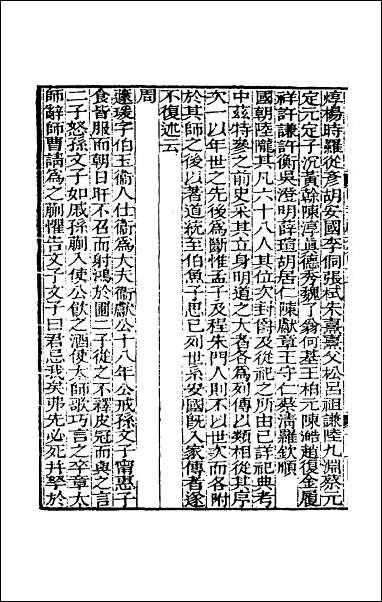 焞楊時羅從彥胡安國李侗張栻朱熹熹父松呂祖謙陸九淵蔡元
定元定子沉黃榦陳淳真德秀魏了翁何基王柏元陳澔趙復金履
祥許謙許衡吳澄明薛瑄胡居仁陳獻章王守仁蔡清羅欽順
國朝陸隴其凡六十八人其位次封爵及從祀之所由已詳祀典考
中茲特參之前史采其立身明道之大者各為列傳以類相從其序
次一以年世之先後為斷惟孟子及程朱門人則不以世次而各附
於其師之後以著道統至伯魚子思已列世系安國旣入家傳者遂
不復述云
周
蘧瑗字伯玉衞人仕衞為大夫衞獻公十八年公戒孫文子甯惠子
食皆服而朝日旰不召而射鴻於囿二子從之不釋皮冠而與之言
二子怒孫文子如戚孫蒯入使公飲之酒使太師歌巧言之卒章太
師辭師曹請為之蒯懼告文子文子曰君忌我矣弗先必死幷孥於